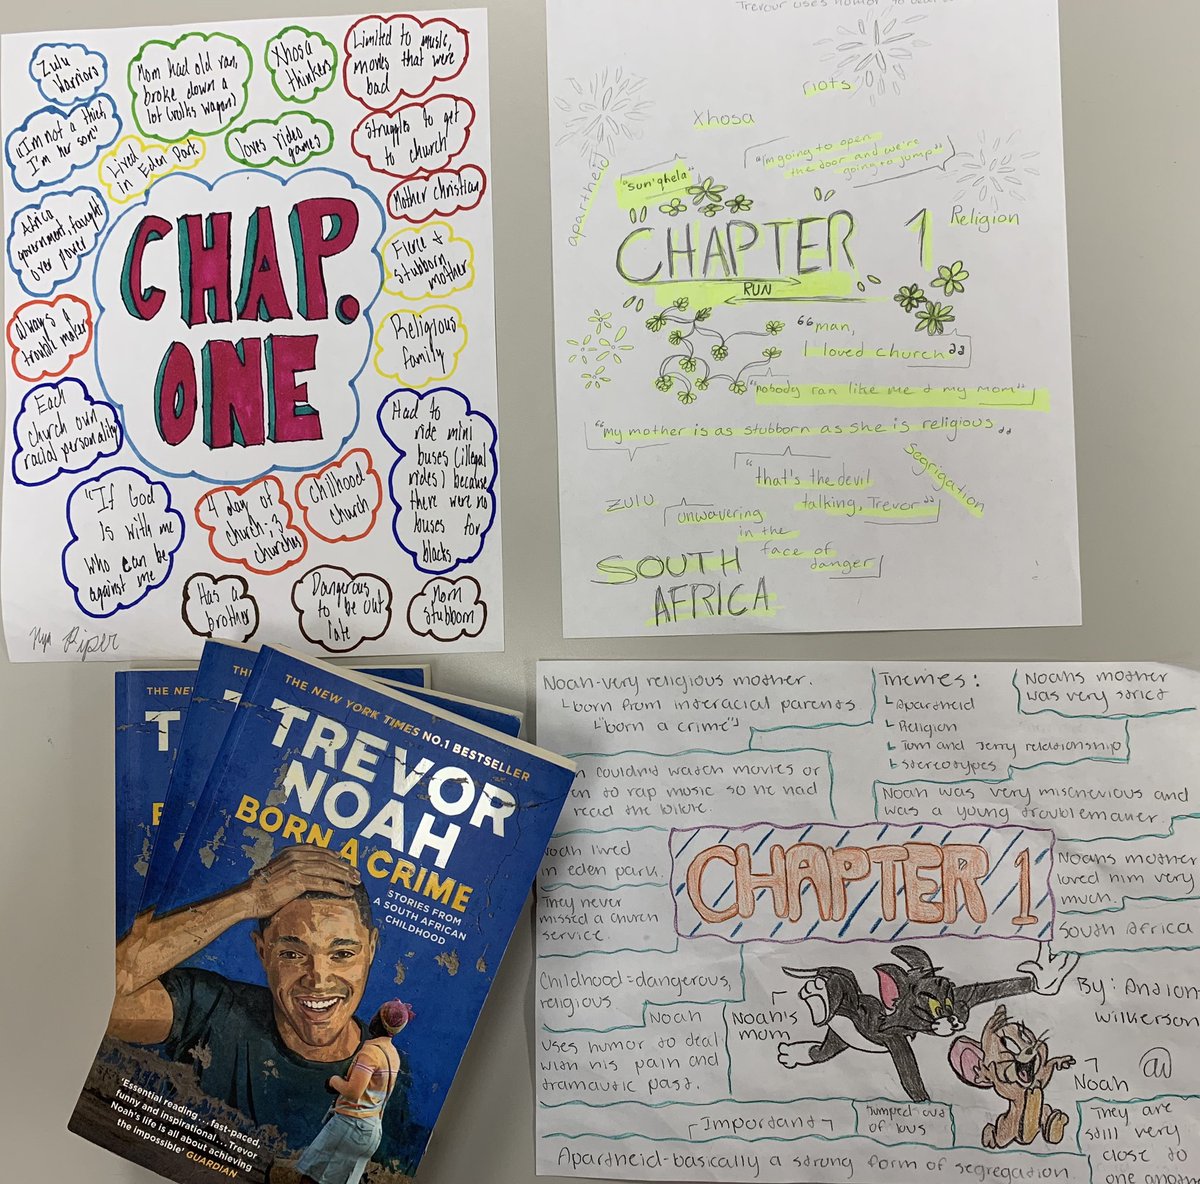 Zulu
Warriors
Mom had old van,
broke down a
lot (volks wagon)
Xhosa
thinkers
Limited to music,
movies that were
bad
"I'm not a thief,
I'm her son"
Lived
in Eden Park
loves video
games
struggles to get
to church
Mother christian
Africa
government, taught
over power
Fierce &
stubborn
mother
CHAP.
ONE
Always a
trouble maker
Religious
family
Each
church own
racial personality
Had to
ride mini
buses (illegal
rides) because
there were no
buses for
blacks
"If God
Is with me
who can be
against me
4 day of
church, 3
churches
Chilhood
church
Has a
brother
Dangerous
to be out
late
Mom
stubborn
Piper
Trevour uses humor to deal
riots
Xhosa
apartheid
"sun'qhela"
"i'm going to open
the door and we're
going to jump"
Religion
CHAPTER 1
RUN
"man,
I loved church"
"nobody ran like me & my mom"
"my mother is as stubborn as she is religious"
"that's the devil
talking, Trevor"
Segrigation
ZULU
unwavering
in the
face of
danger
SOUTH
AFRICA
THE NEW
THE
THE NEW YORK TIMES NO.1 BESTSELLER
TREVOR
NOAH
BORN A CRIME
STORIES FROM
A SOUTH AFRICAN
CHILDHOOD
'Essential reading... fast-paced,
funny and inspirational... Trevor
Noah's life is all about achieving
the impossible' GUARDIAN
Noah-very religious mother.
born from interacial parents
"born a crime"
Themes:
Apartheid
Religion
Tom and Jerry relationship
stereotypes
Noahs mother
was very strict
couldnt watch movies or
to rap music so he had
read the bible.
Noah was very mischevious and
was a young troublemaker.
Noah lived
in eden park.
CHAPTER 1
Noahs mother
loved him very
much.
They never
missed a church
service.
South Africa
Childhood=dangerous,
religious
Noah's
mom
By: Antion
Wilkerson
Noah
uses humor to deal
with his pain and
tramautic past.
Noah
Important
Jumped out
of bus
They are
still very
close to
one
Apartheid-basically a strong form of segregation.